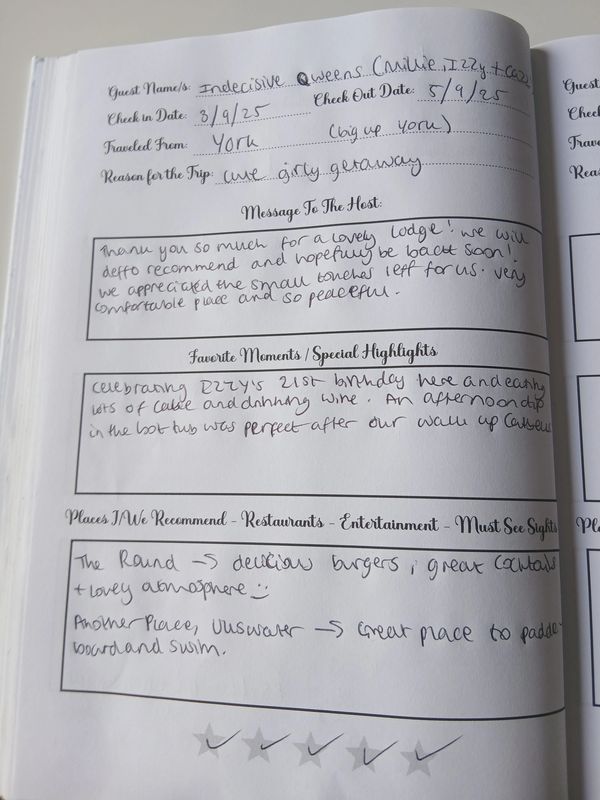 Guest Name/s: Indecisive Qweens (Millie, Izzy + Cazz
Check in Date: 3/9/25 Check Out Date: 5/9/25
Traveled From: York (big up York)
Reason for the Trip: cute girly getaway
Message To The Host:
Thank you so much for a lovely lodge! we will
deffo recommend and hopefully be back soon!
we appreciated the small touches left for us. very
comfortable place and so peaceful.
Favorite Moments / Special Highlights
Celebrating IZZY'S 21st birthday here and eating
lots of cake and drinking wine. An afternoon dip
in the hot tub was perfect after our walk up
Places I/We Recommend - Restaurants - Entertainment - Must See Sights
The Round → delicious burgers, great cocktails
+ lovely atmosphere :)
Another Place, Ullswater → Great place to paddle
board and swim.
Guest
Check
Trave
Reas
Pl